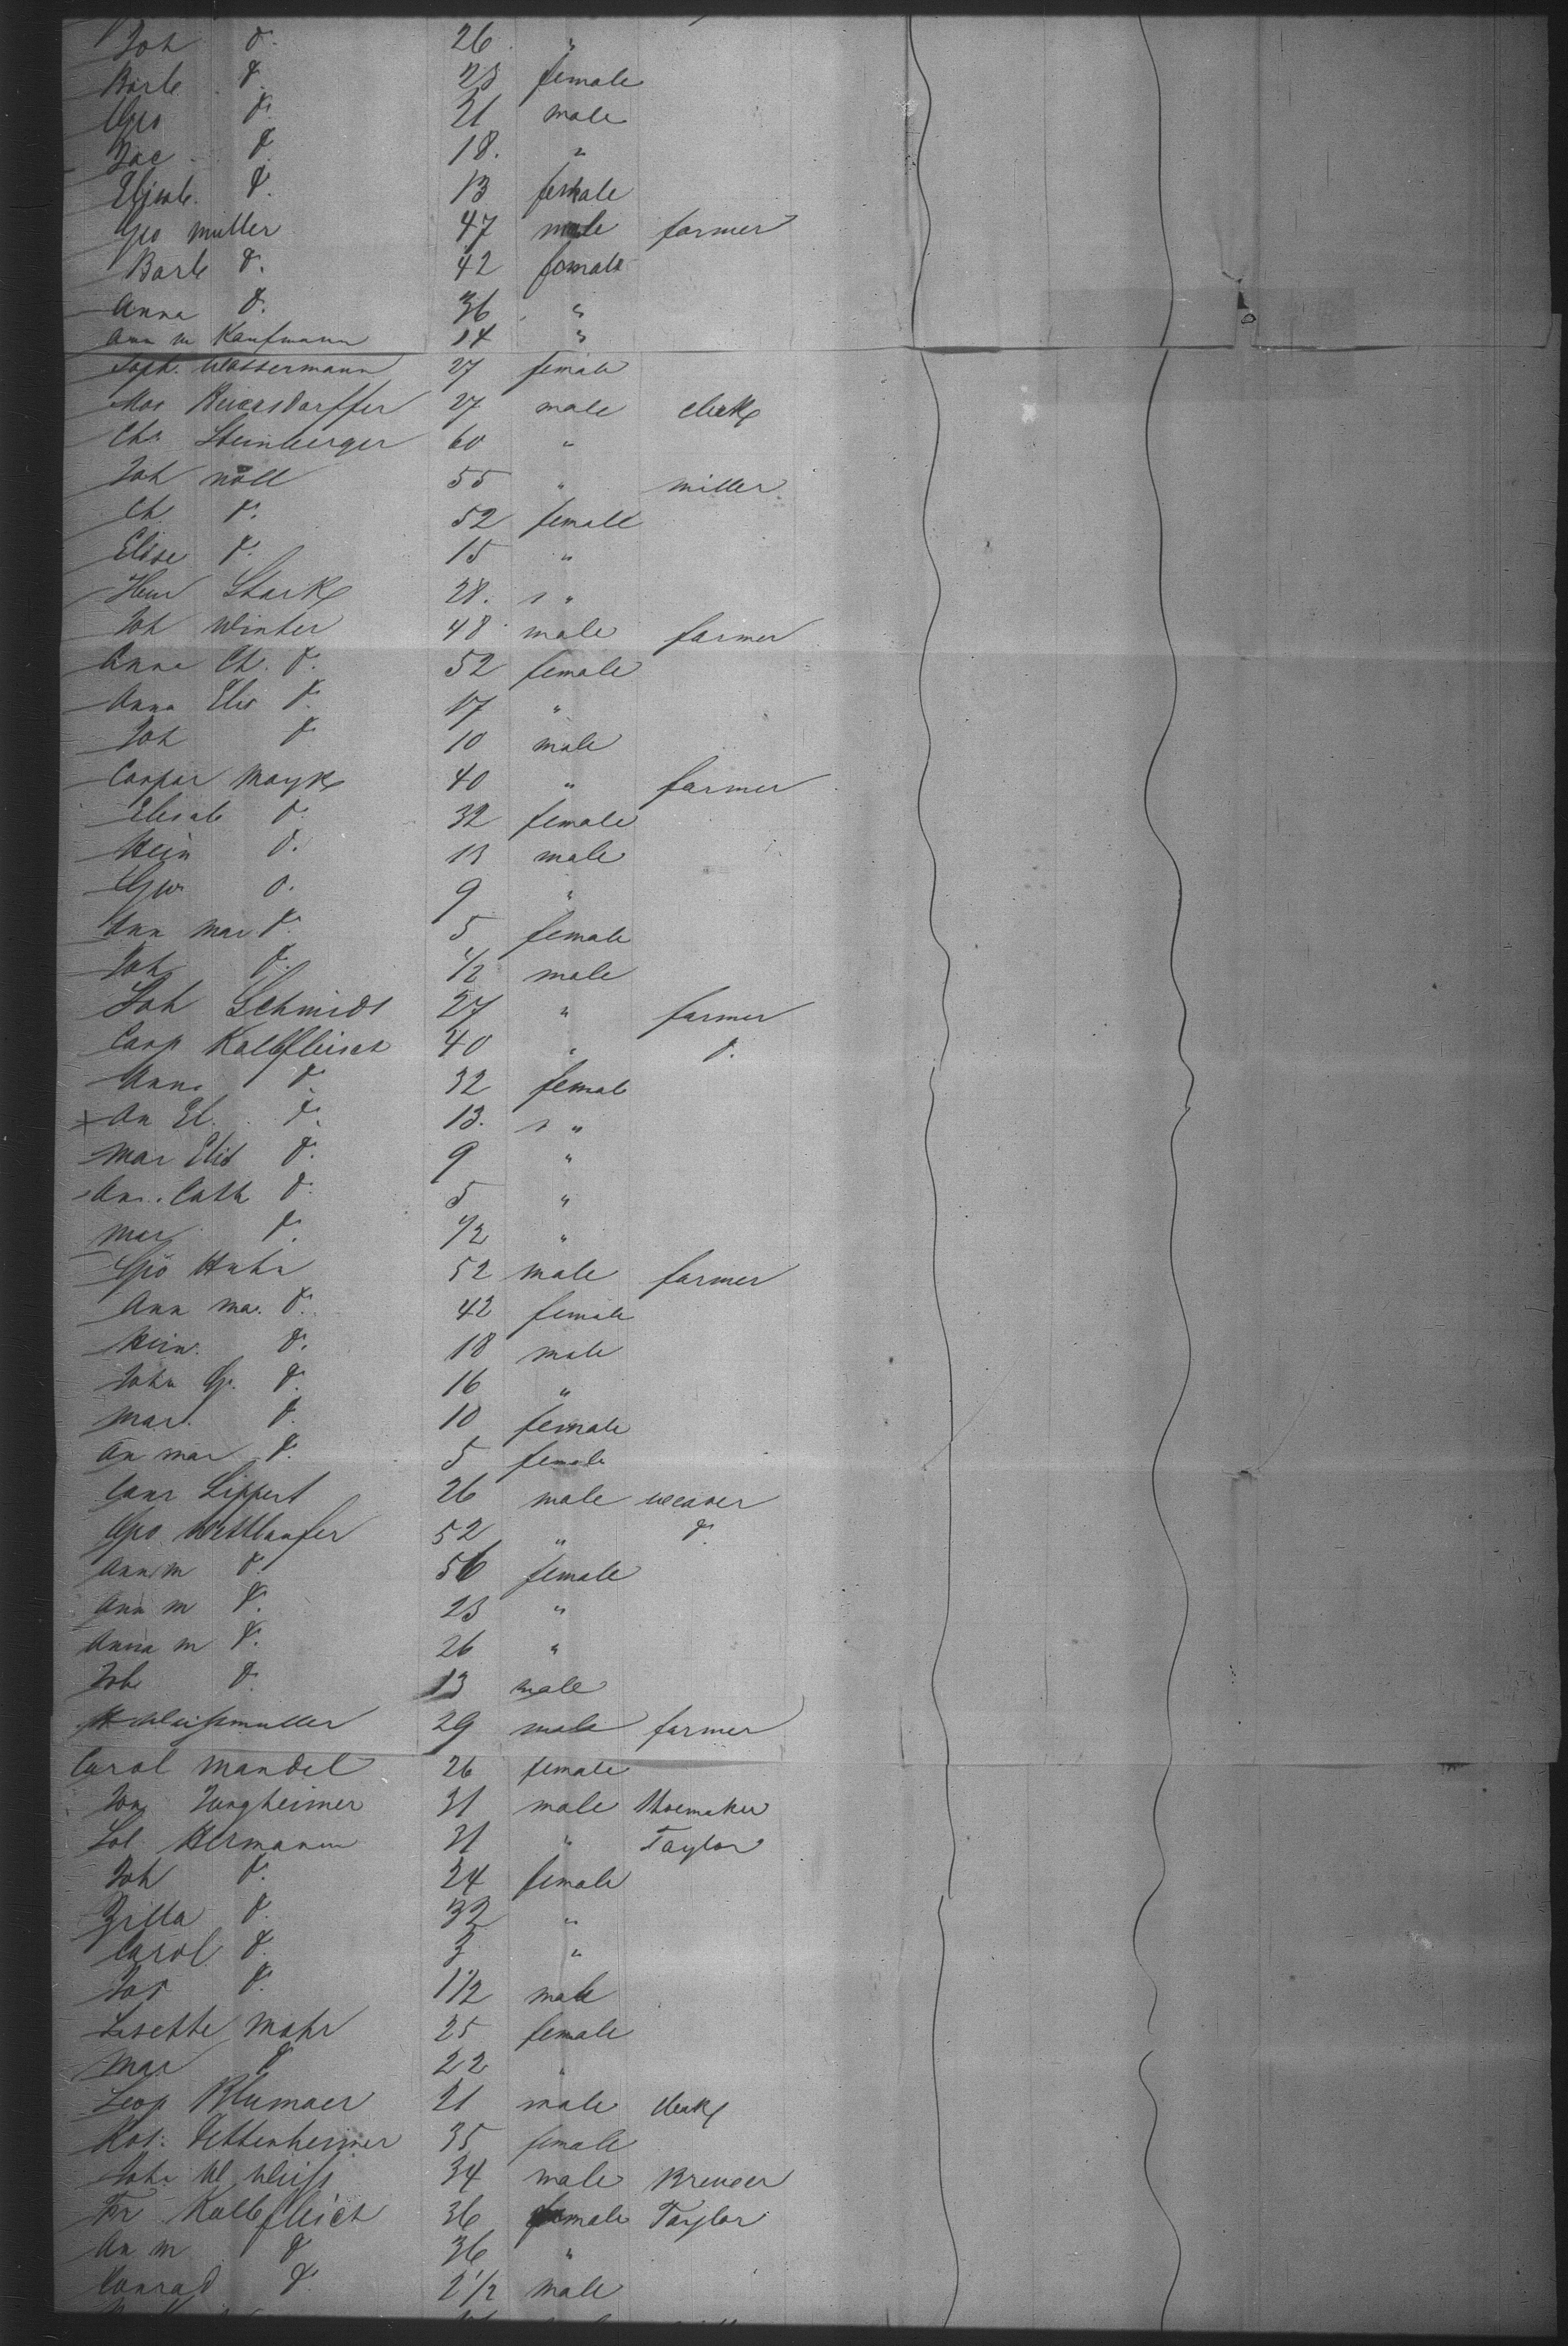 Joh d. 26 "
Barb d. 23 female
Geo d. 21 male
Jac d. 18. "
Elisab. d. 13 female
Geo Muller 47 male farmer
Barb d. 42 female
Anna d. 36 "
Ann M Kaufmann 14 "
Soph. Wassermann 27 female
Mos Beiersdorffer 27 male clerk
Chr Steinberger 60 "
Joh Nöll 55 " miller
Ch d. 52 female
Elise d. 15 "
Henr Stark 28. s "
Joh Winter 48 male farmer
Anna Ch. d. 52 female
Anna Elis d. 17 "
Joh d 10 male
Caspar Mayk 40 " farmer
Elisab d. 32 female
Hein d. 13 male
Geo d. 9 "
Ann Mar d. 5 female
Joh d. 1/2 male
Joh Schmidt 27 " farmer
Casp Kalbfleisch 40 " d.
Anna d. 32 female
x An El. d. 13. s "
Mar Elis d. 9 "
An. Cath d. 5 "
Mar d. 1/2 "
Geo Huhn 52 male farmer
Ann Ma. d. 42 female
Hein. d. 18 male
John G. d. 16 "
Mar. d. 10 female
An Mar d. 5 female
Conr Lippert 26 male weaver
Geo Wettlaufer 52 " d.
Ann M d. 56 female
Ann M d. 23 "
Anna M d. 26 "
Joh d. 13 male
Weissmuller 29 male farmer
Carol Mandel 26 female
Jungheimer 31 male Shoemaker
Sol Hermann 31 " Taylor
Joh d. 24 female
Zilla d. 32 "
Carol d. 3 "
Jos d. 1 1/2 male
Lisette Mohr 25 female
Mar d 22 "
Leop Blumaer 21 male clerk
Ros. Dettenheimer 35 female
Joh W Weiss 34 male Brewer
Fr Kalbfleisch 36 female Taylor
An M d 36 "
Conrad d. 2 1/2 male